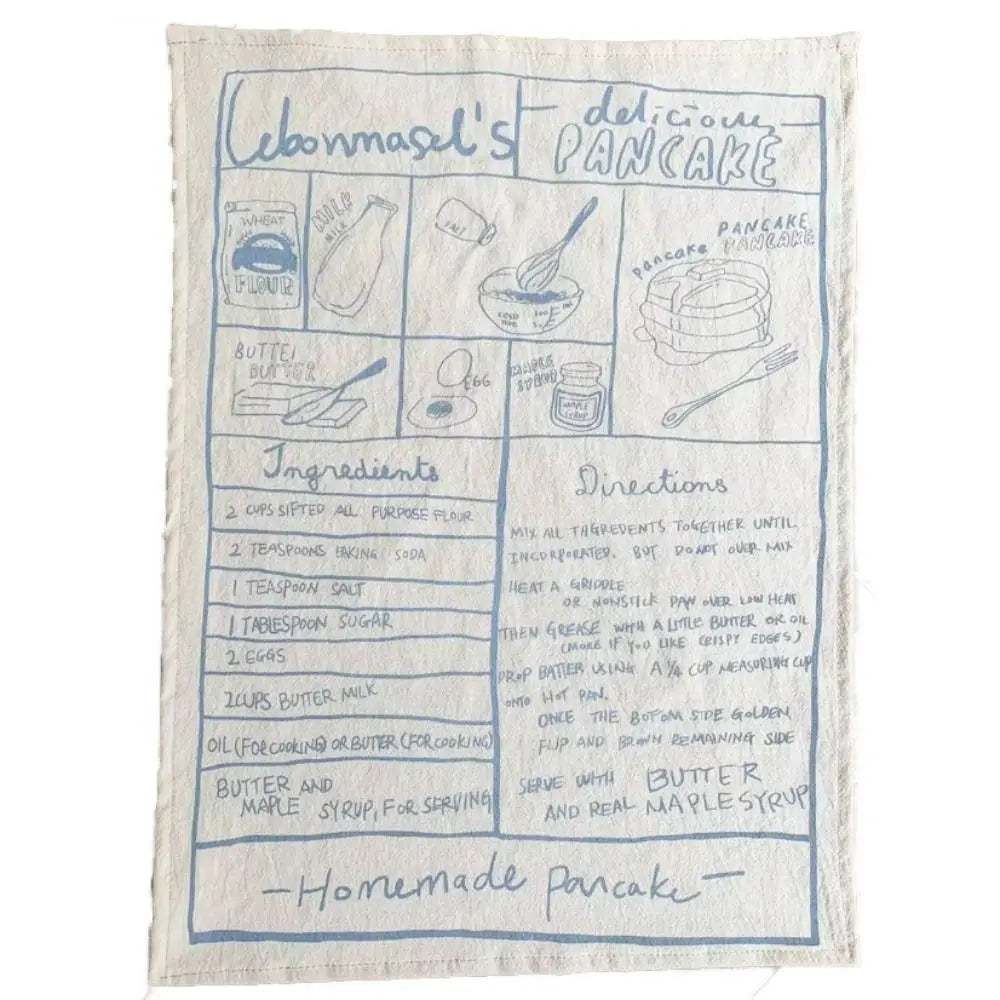 Lebonmasel's
delicious
PANCAKE
WHEAT
FLOUR
MILK
MILK
SALT
PANCAKE
PANCAKE
pancake
BUTTE
BUTTER
EGG
MAPLE
SYRUP
MAPLE
SYRUP
Ingredients
2 CUPS SIFTED ALL PURPOSE FLOUR
2 TEASPOONS BAKING SODA
1 TEASPOON SALT
1 TABLESPOON SUGAR
2 EGGS
2CUPS BUTTER MILK
OIL (FOR COOKING) OR BUTTER (FOR COOKING)
BUTTER AND
MAPLE SYRUP, FOR SERVING
Directions
MIX ALL THGREDENTS TOGETHER UNTIL
INCORPORATED. BUT DO NOT OVER MIX
HEAT A GRIDDLE
OR NONSTICK PAN OVER LOW HEAT
THEN GREASE WITH A LITTLE BUTTER OR OIL
(MORE IF YOU LIKE CRISPY EDGES)
DROP BATTER USING A ¼ CUP MEASURING CUP
ONTO HOT PAN.
ONCE THE BOTOM SIDE GOLDEN
FLIP AND BROWN REMAINING SIDE
SERVE WITH BUTTER
AND REAL MAPLE SYRUP
-Homemade pancake-